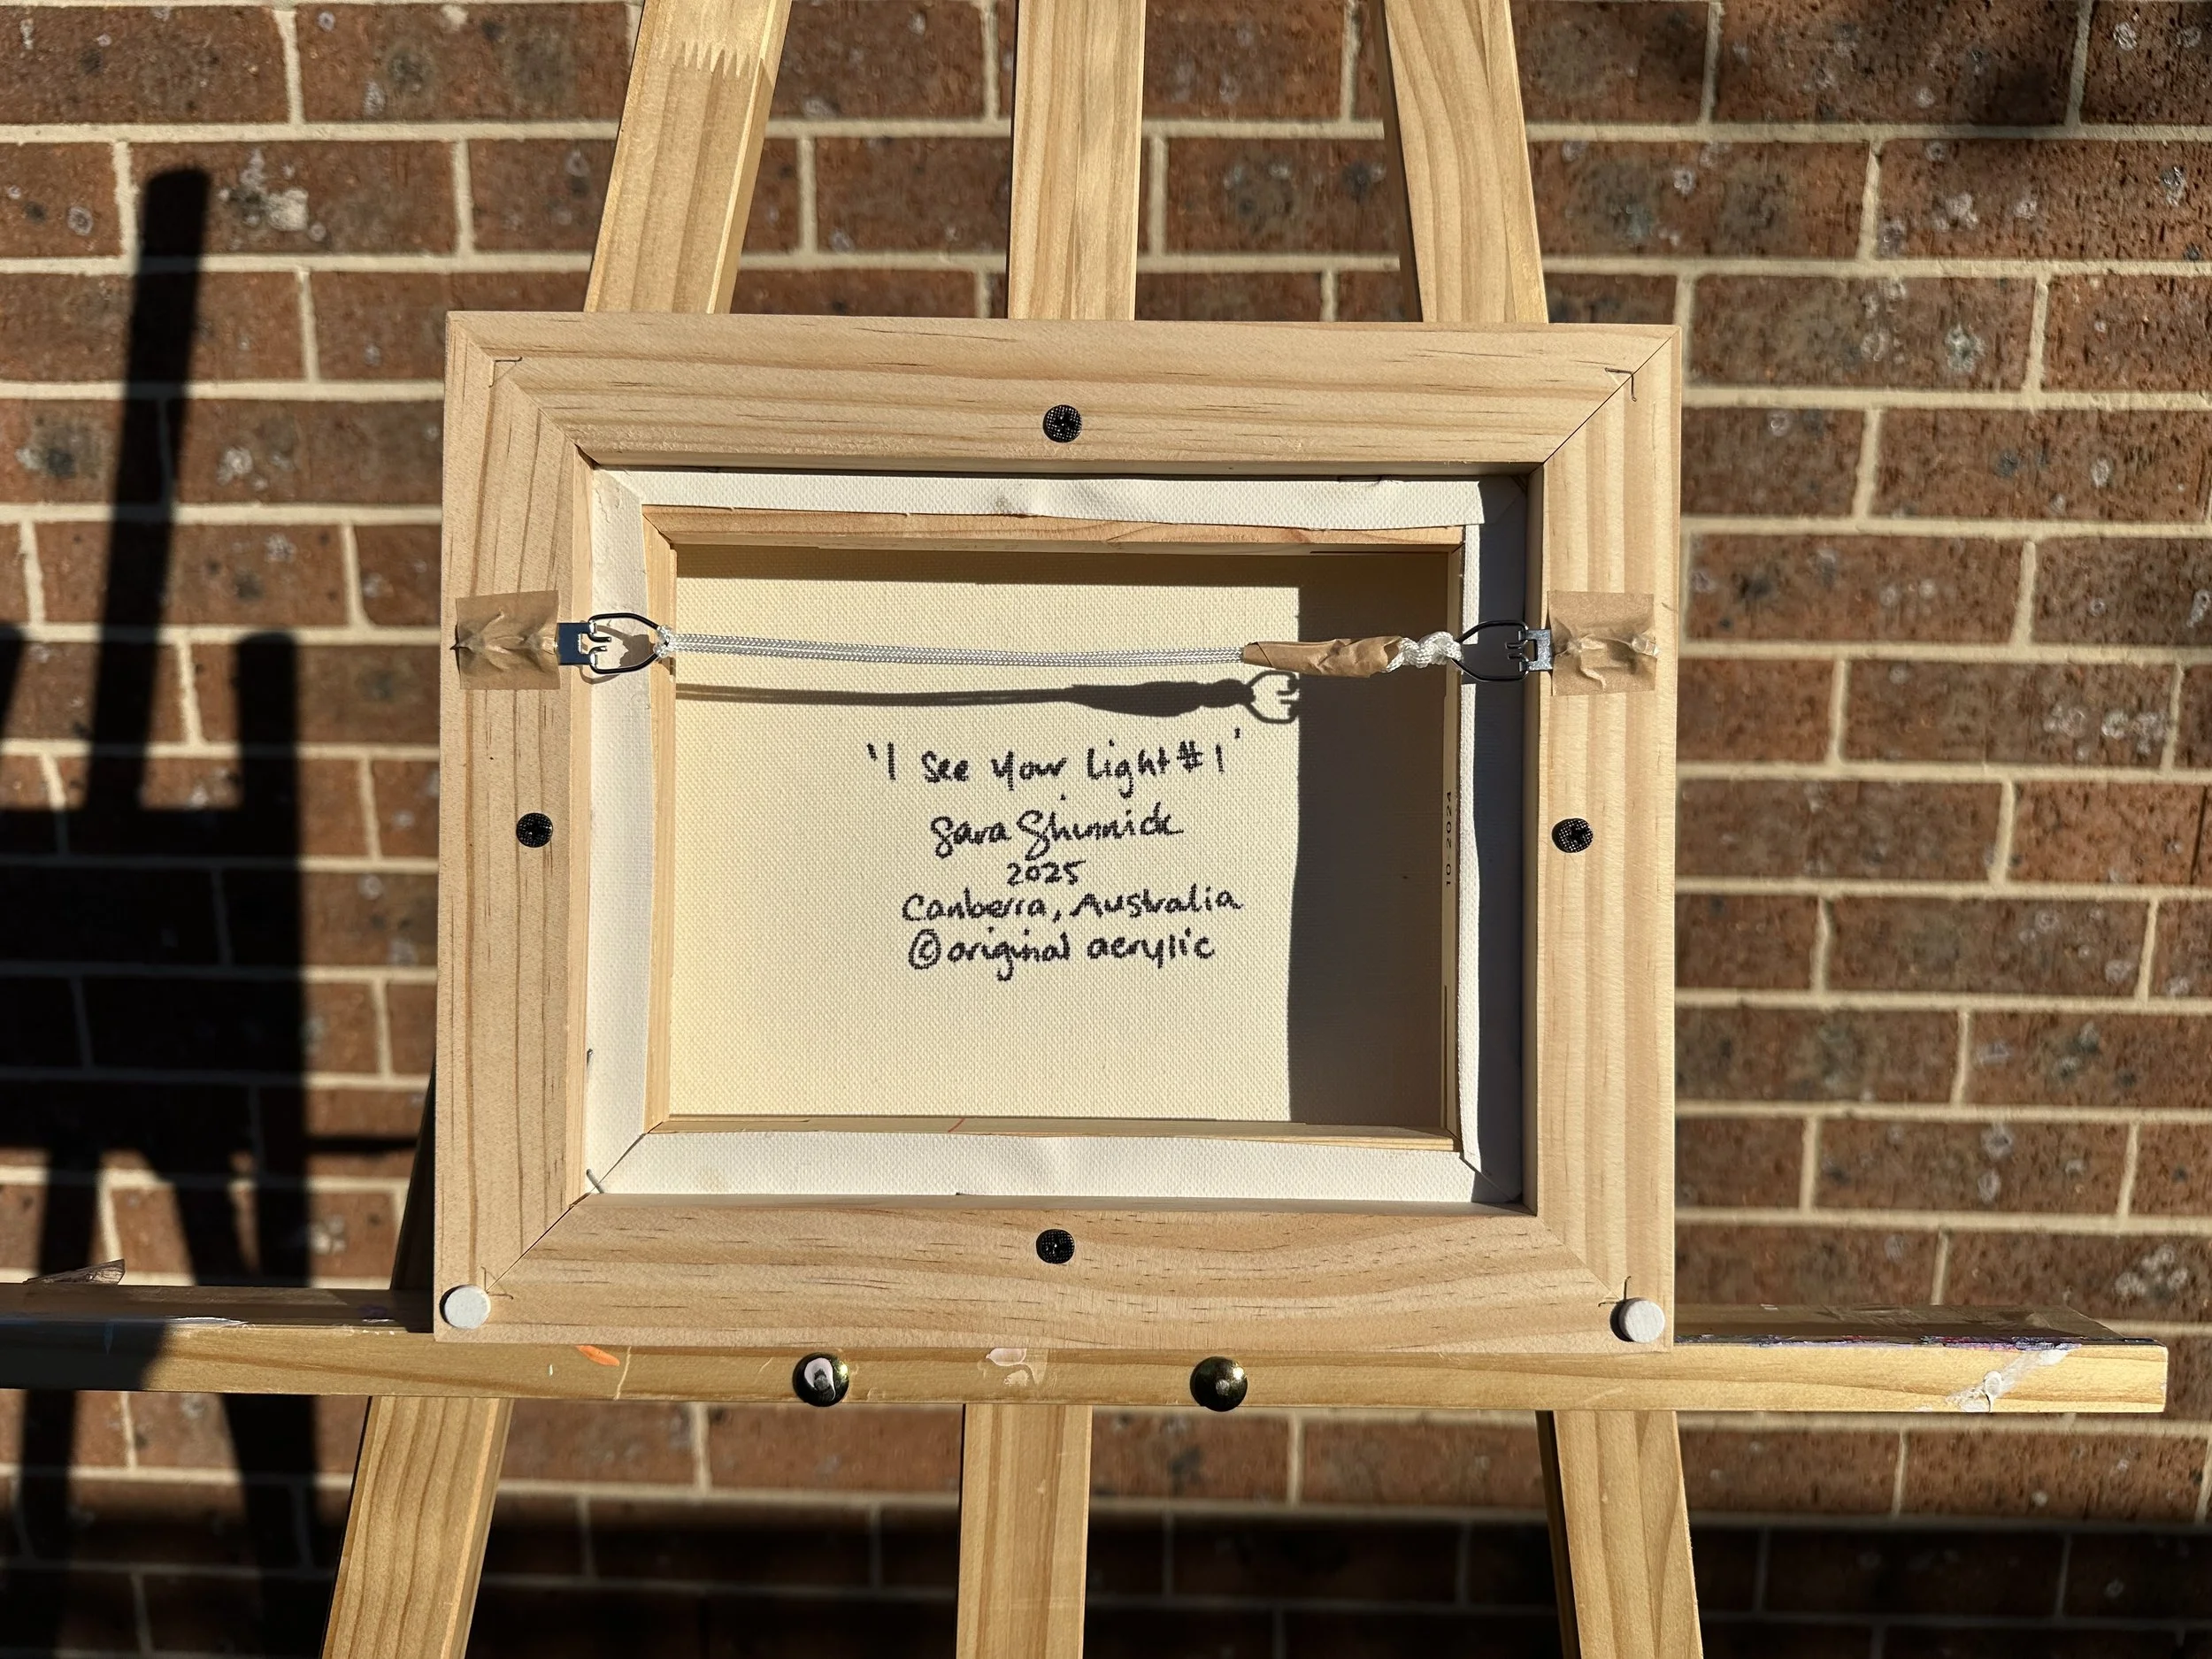 'I see your Light #1'
Sara Shinnick
2025
Canberra, Australia
© original acrylic
10-2024